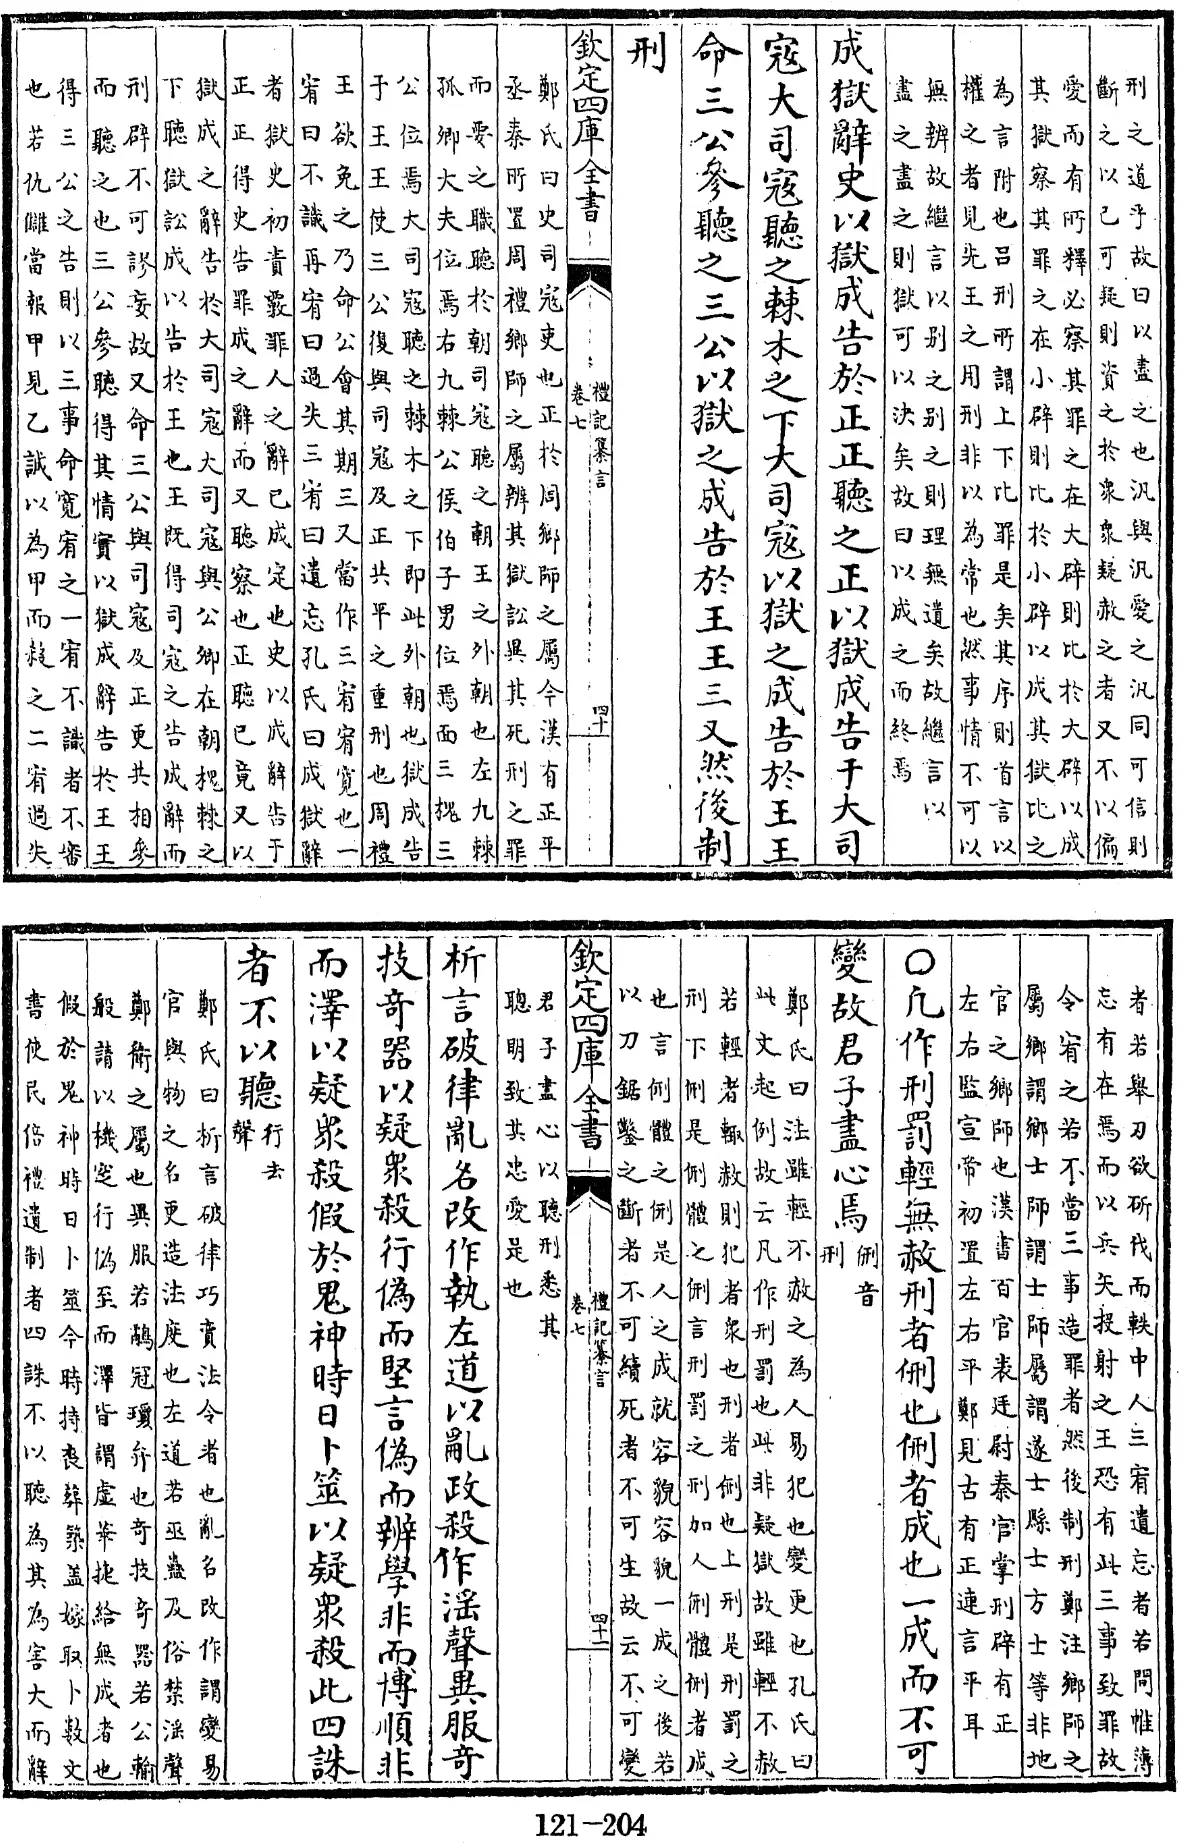 刑之道乎故曰以盡之也汎與汎愛之汎同可信則
斷之以己可疑則資之於衆衆疑赦之者又不以偏
愛而有所釋必察其罪之在大辟則比於大辟以成
其獄察其罪之在小辟則比於小辟以成其獄比之
為言附也吕刑所謂上下比罪是矣其序則首言以
權之者見先王之用刑非以為常也然事情不可以
無辨故繼言以别之别之則理無遺矣故繼言以
盡之盡之則獄可以決矣故曰以成之而終焉
成獄辭史以獄成告於正正聽之正以獄成告于大司
寇大司寇聽之棘木之下大司寇以獄之成告於王王
命三公參聽之三公以獄之成告於王王三又然後制
刑
欽定四庫全書
禮記纂言
卷七
四十
鄭氏曰史司寇吏也正於周鄉師之屬今漢有正平
丞秦所置周禮鄉師之屬辨其獄訟異其死刑之罪
而要之職聽於朝司寇聽之朝王之外朝也左九棘
孤卿大夫位焉右九棘公侯伯子男位焉面三槐三
公位焉大司寇聽之棘木之下即此外朝也獄成告
于王王使三公復與司寇及正共平之重刑也周禮
王欲免之乃命公會其期三又當作三宥宥寛也一
宥曰不識再宥曰過失三宥曰遺忘孔氏曰成獄辭
者獄史初責覈罪人之辭已成定也史以成辭告于
正正得史告罪成之辭而又聽察也正聽已竟又以
獄成之辭告於大司寇大司寇與公卿在朝槐棘之
下聽獄訟成以告於王也王既得司寇之告成辭而
刑辟不可謬妄故又命三公與司寇及正更共相參
而聽之也三公參聽得其情實以獄成辭告於王王
得三公之告則以三事命寛宥之一宥不識者不審
也若仇讎當報甲見乙誠以為甲而殺之二宥過失
者若舉刃欲斫伐而軼中人三宥遺忘者若間帷薄
忘有在焉而以兵矢投射之王恐有此三事致罪故
令宥之若不當三事造罪者然後制刑鄭注鄉師之
屬鄉謂鄉士師謂士師屬謂遂士縣士方士等非地
官之鄉師也漢書百官表廷尉秦官掌刑辟有正
左右監宣帝初置左右平鄭見古有正連言平耳
○凡作刑罰輕無赦刑者侀也侀者成也一成而不可
變故君子盡心焉
侀音
刑
鄭氏曰法雖輕不赦之為人易犯也變更也孔氏曰
此文起例故云凡作刑罰也此非疑獄故雖輕不赦
若輕者輒赦則犯者衆也刑者侀也上刑是刑罰之
刑下侀是侀體之侀言刑罰之刑加人侀體侀者成
也言侀體之侀是人之成就容貌容貌一成之後若
以刀鋸鑿之斷者不可續死者不可生故云不可變
欽定四庫全書
禮記纂言
卷七
四十一
君子盡心以聽刑悉其
聰明致其忠愛是也
析言破律亂名改作執左道以亂政殺作淫聲異服奇
技奇器以疑衆殺行偽而堅言偽而辨學非而博順非
而澤以疑衆殺假於鬼神時日卜筮以疑衆殺此四誅
者不以聽
行去
聲
鄭氏曰析言破律巧賣法令者也亂名改作謂變易
官與物之名更造法度也左道若巫蠱及俗禁淫聲
鄭衛之屬也異服若鷸冠瓊弁也奇技奇器若公輸
般請以機窆行偽至而澤皆謂虛華捷給無成者也
假於鬼神時日卜筮今時持喪葬築盖嫁取卜數文
書使民倍禮違制者四誅不以聽為其為害大而辭
121-204